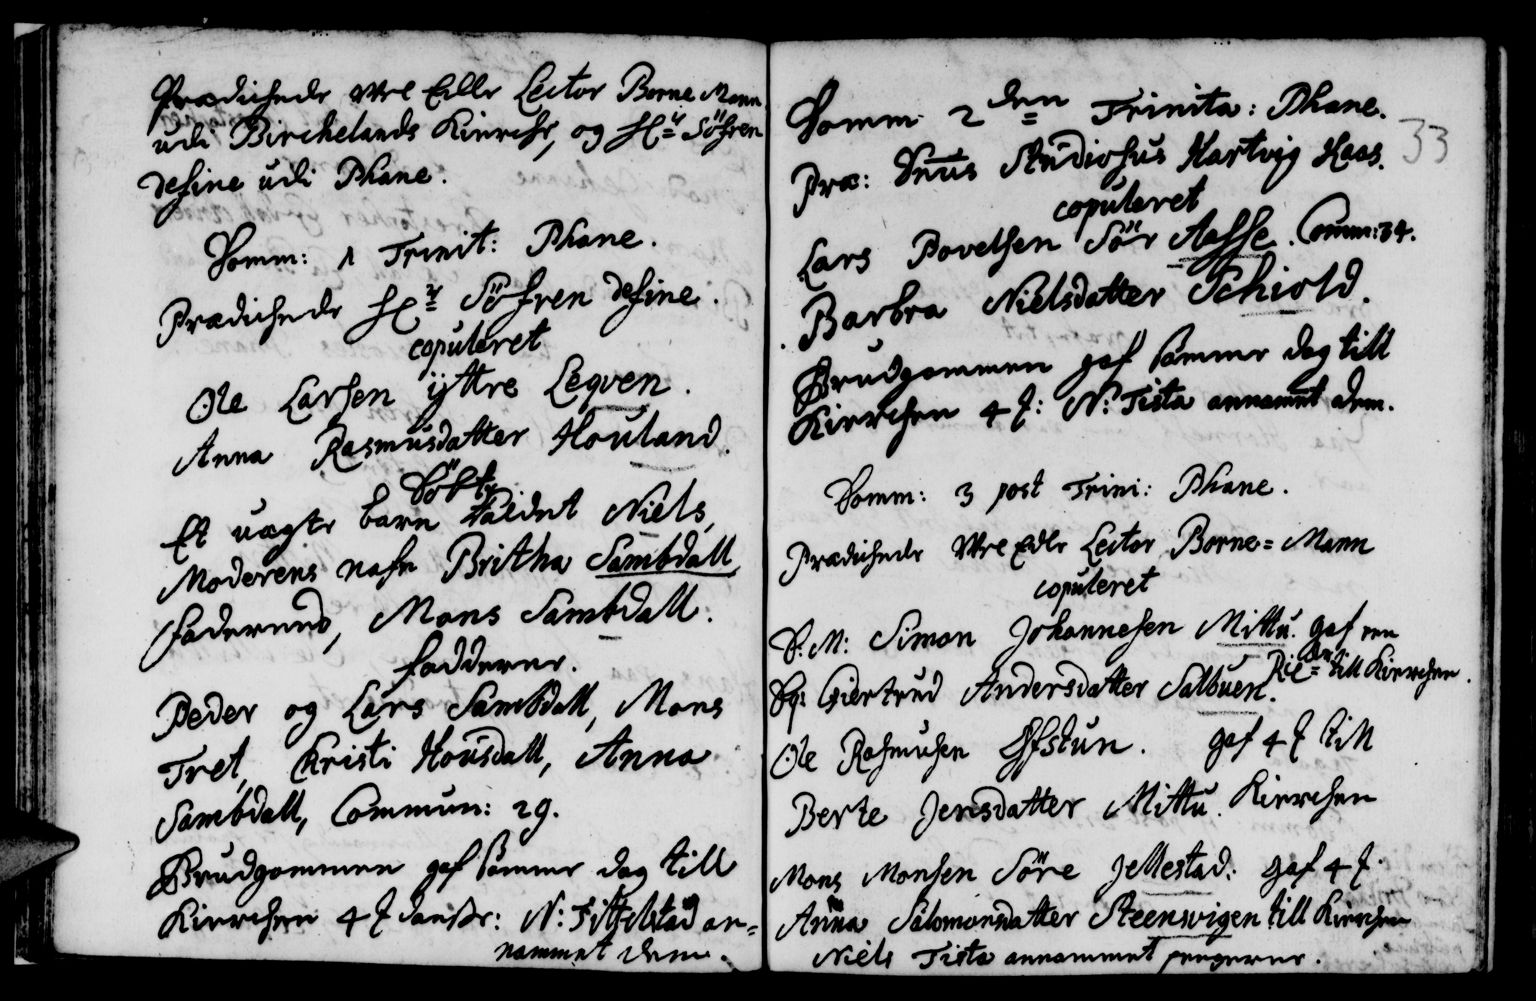 Prædichede Wel Edle Lector Borne Mann
udi Birchelands Kirche, og Hr Söfren
Define udi Phane.
Domm: 1 Trinit: Phane.
Prædichede Hr Söfren Define.
copuleret
Ole Larsen ÿttre Leqven.
Anna Rasmusdatter Houland.
Döbt
Et uægte barn kaldet Niels,
Moderens nafn Britha Sambdall
Faderens, Mons Sambdall.
Fadderne.
Peder og Lars Sambdall, Mons
Tret, Kristi Housdall, Anna
Sambdall, Commun: 29.
Brudgommen gaf samme dag till
Kirchen 4 ʒ danske: N: Tittelstad an=
nammet dem.
33
Domm 2den Trinita: Phane.
Præ: Dnus Studiosus Hartvig Haas.
copuleret
Lars Povelsen Sör Aasse. Comm: 34.
Barbra Nielsdatter Schiold.
Brudgommen gaf samme dag till
Kirchen 4 ʒ: N: Tista annamet dem.
Domm: 3 post Trini: Phane.
Prædichede Wel Edle Lector Borne=Mann
copuleret
S: M: Simon Johannesen Mittu. gaf en
Sq: Giertrud Andersdatter Salbuen. till Kirchen.
Ole Rasmusen Øfstun. gaf 4 ʒ till
Berte Jensdatter Mittu. Kirchen
Mons Monsen Söre Jellestad: gaf 4 ʒ
Anna Salomonsdatter Steensvigen till Kirchen
Niels Tista annammet pengerne.